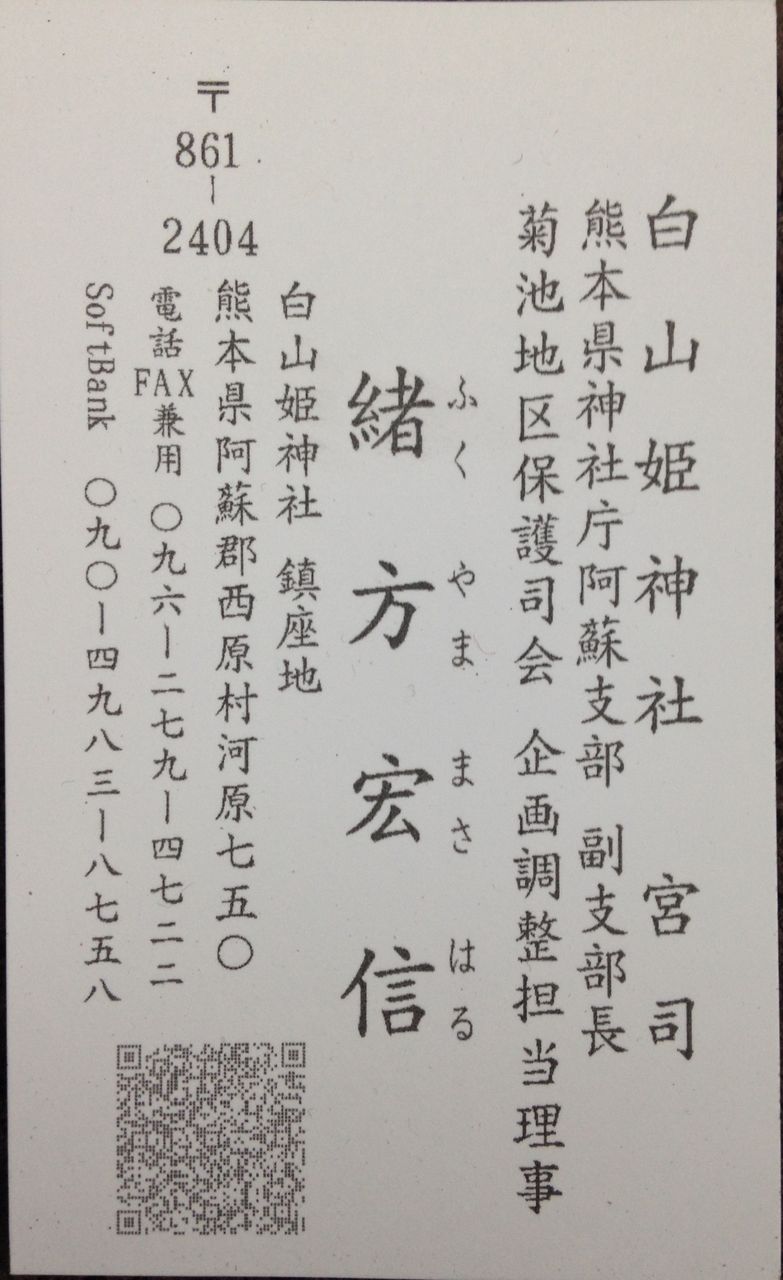 白山姫神社 宮司
熊本県神社庁阿蘇支部 副支部長
菊池地区保護司会 企画調整担当理事
ふく やま まさ はる
緒方宏信
白山姫神社 鎮座地
〒861-2404
熊本県阿蘇郡西原村河原七五〇
電話FAX兼用 〇九六ー二七九ー四七二二
SoftBank 〇九〇ー四九八三ー八七五八